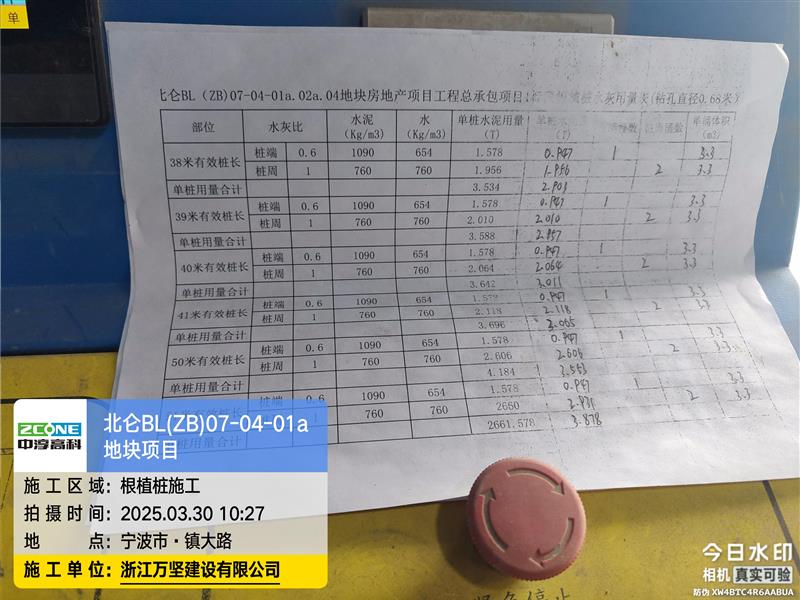 单
北仑BL（ZB)07-04-01a.02a.04地块房地产项目工程总承包项目 桩水灰用量表(钻孔直径0.68米)
部位 水灰比 水泥(Kg/m3) 水(Kg/m3) 单桩水泥用量(T) 单桩水 (T) 单桶体积(m3)
38米有效桩长 桩端 0.6 1090 654 1.578 0.947 1 3.3
桩周 1 760 760 1.956 1.956 2 3.3
单桩用量合计 3.534 2.903
39米有效桩长 桩端 0.6 1090 654 1.578 0.947 1 3.3
桩周 1 760 760 2.010 2.010 2 3.3
单桩用量合计 3.588 2.957
40米有效桩长 桩端 0.6 1090 654 1.578 0.947 1 3.3
桩周 1 760 760 2.064 2.064 2 3.3
单桩用量合计 3.642 3.011
41米有效桩长 桩端 0.6 1090 654 1.578 0.947 1 3.3
桩周 1 760 760 2.118 2.118 2 3.3
单桩用量合计 3.696 3.065
50米有效桩长 桩端 0.6 1090 654 1.578 0.947 1 3.3
桩周 1 760 760 2.606 2.606 2 3.3
单桩用量合计 4.184 3.553
米有效桩长 桩端 1090 654 1.578 0.947 1 3.3
1 760 760 2660 2.931 2 3.3
单桩用量合计 2661.578 3.878
ZCONE
中淳高科
北仑BL(ZB)07-04-01a
地块项目
施工区域：根植桩施工
拍摄时间：2025.03.30 10:27
地点：宁波市·镇大路
施工单位：浙江万坚建设有限公司
紧急停止
今日水印
相机 真实可验
防伪 XW4BTC4R6AABUA